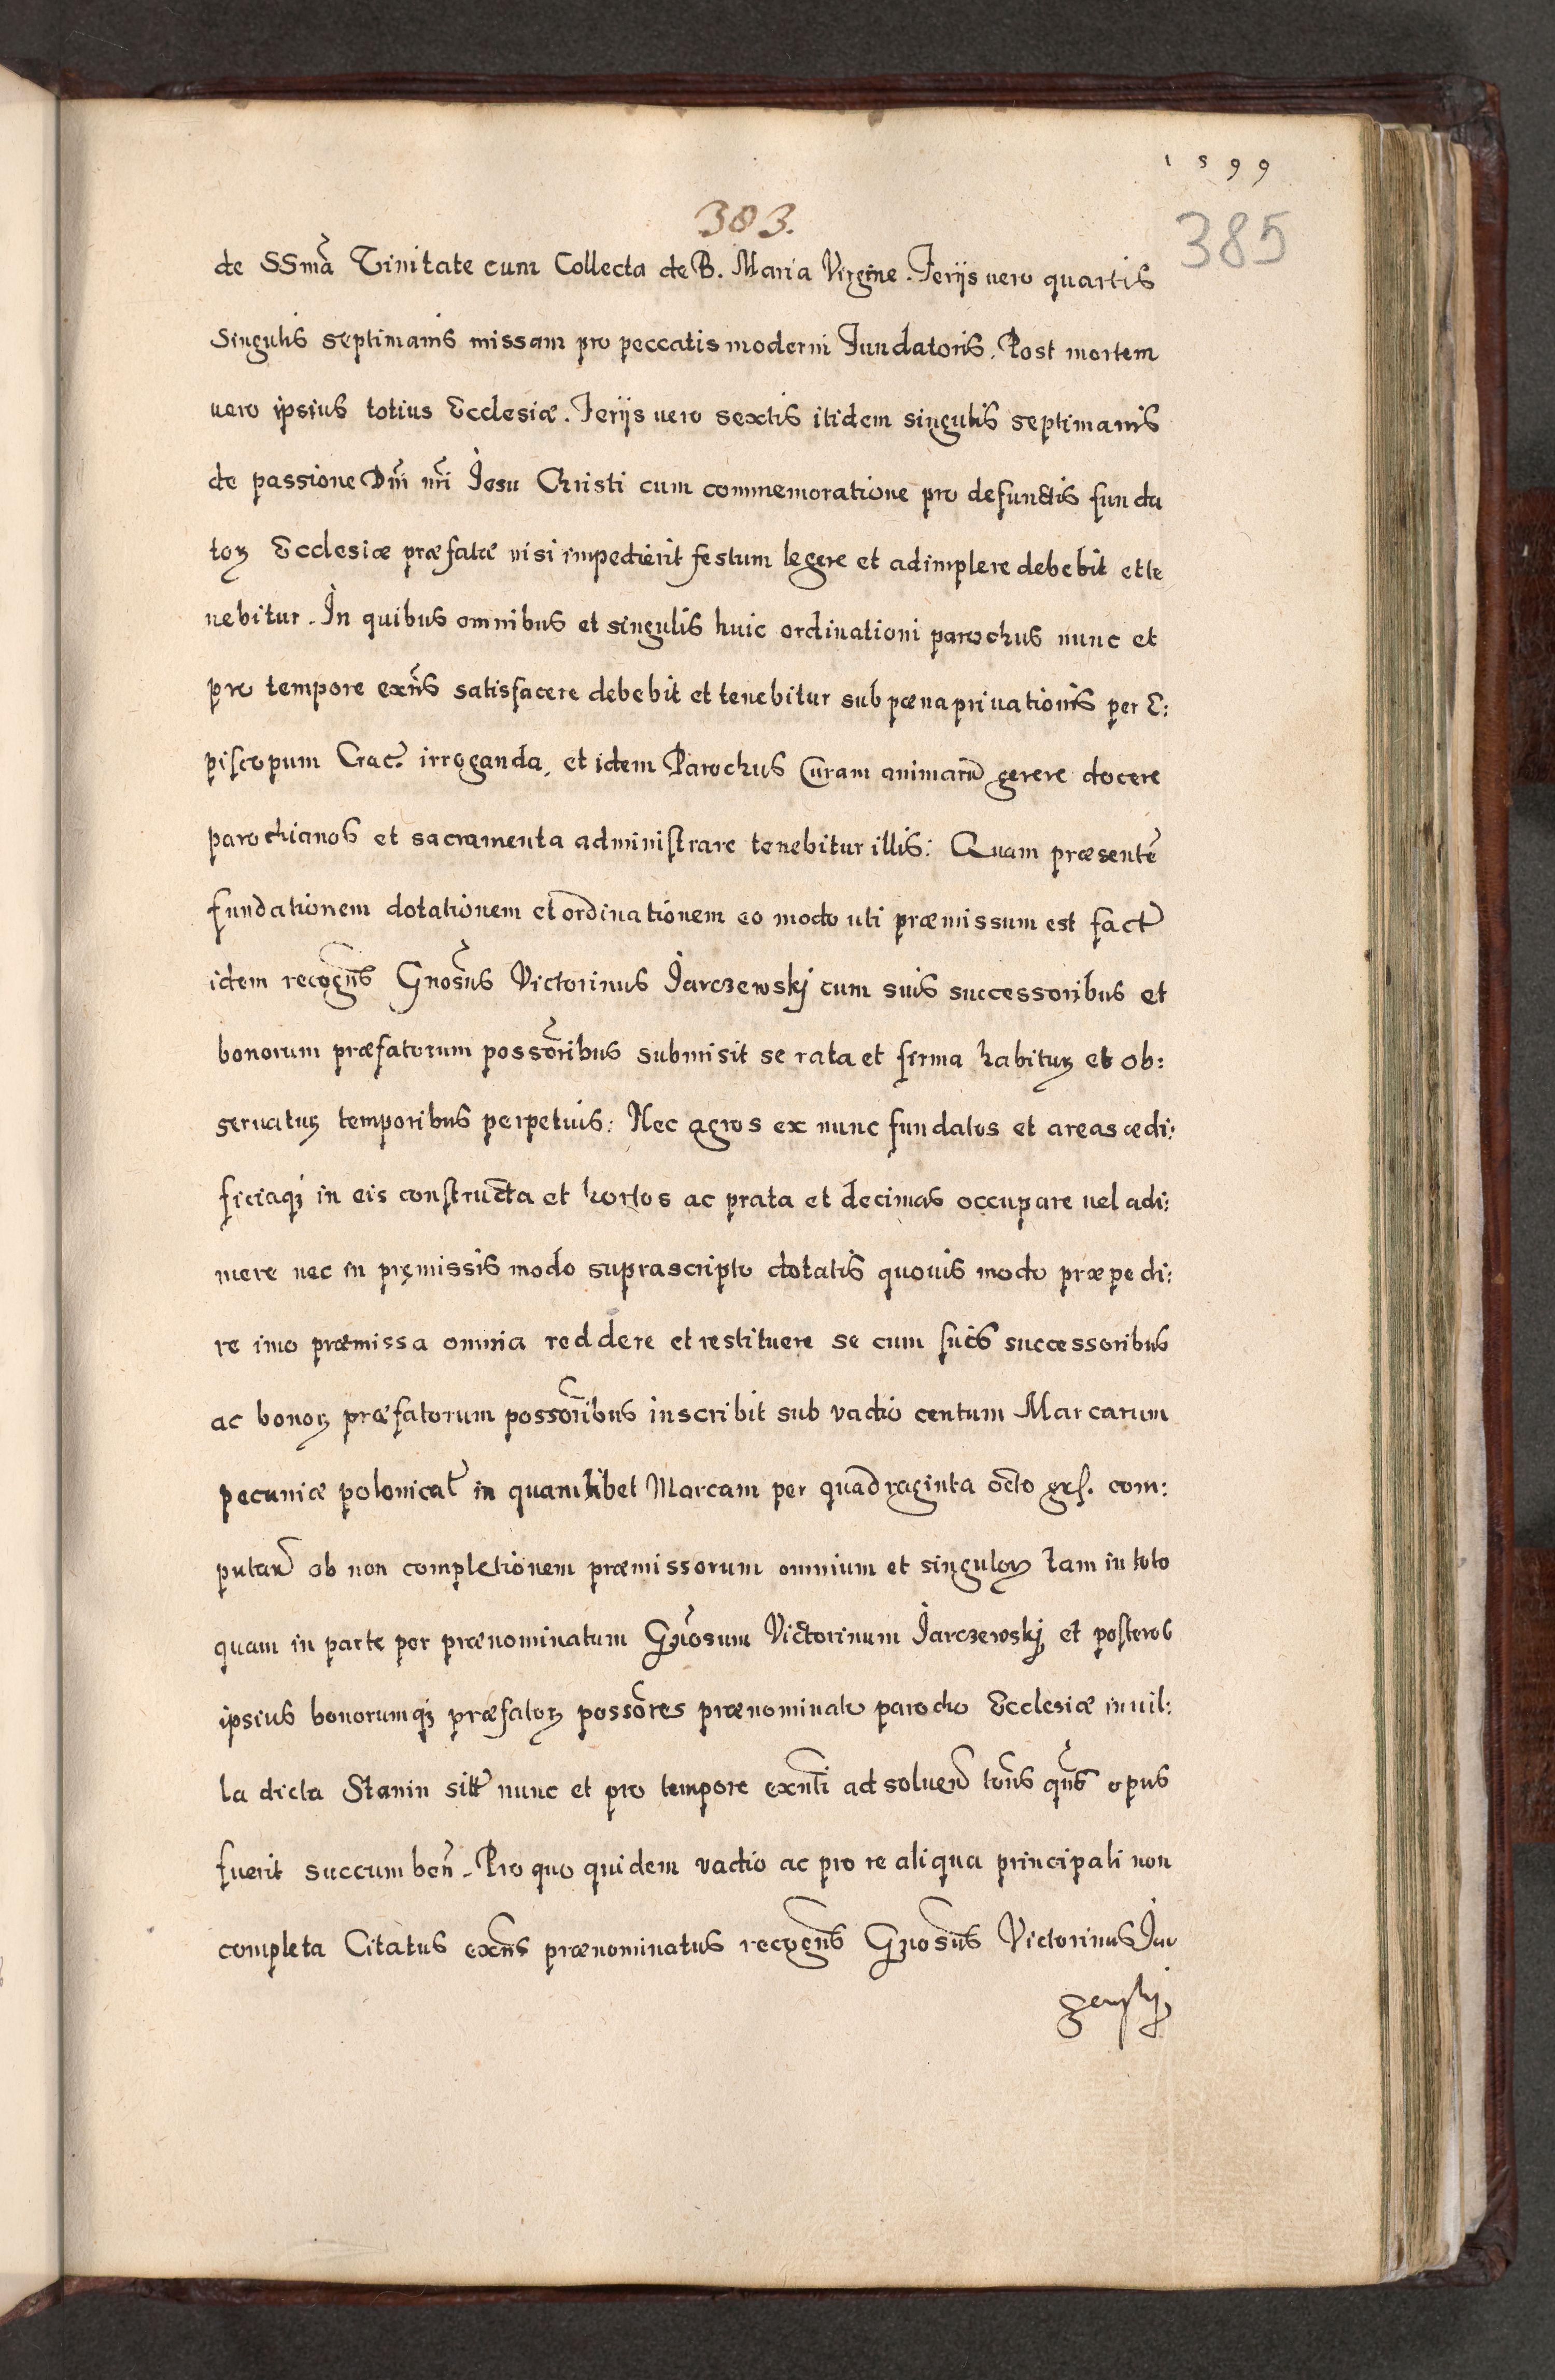 1599
383.
385
de SSmã Trinitate cum Collecta de B. Maria Virgine. Ferijs uero quartis
Singulis septimanis missam pro peccatis moderni Fundatoris. Post mortem
uero ipsius totius Ecclesiæ. Ferijs uero sextis itidem singulis septimanis
de passione Dñi nri Jesu Christi cum commemoratione pro defunctis funda
toꝝ Ecclesiæ præfatæ nisi impedierit festum legere et adimplere debebit et te
nebitur. In quibus omnibus et singulis huic ordinationi parochus nunc et
pro tempore exñs satisfacere debebit et tenebitur sub pœna priuationis per E:
piscopum Crac. irroganda, et idem Parochus Curam animarũ gerere docere
parochianos et sacramenta administrare tenebitur illis: Quam præsentẽ
fundationem dotationem et ordinationem eo modo uti præmissum est fact̃
idem recogñs Gnosus Victorinus Jarczewskj cum suis successoribus et
bonorum præfatorum possõribus submisit se rata et firma habituꝝ et ob:
seruatuꝝ temporibus perpetuis: Nec agros ex nunc fundatos et areas ædi:
ficiaqꝫ in eis constructa et hortos ac prata et decimas occupare uel adi:
mere nec in pręmissis modo suprascripto dotatis quouis modo præpedi:
re imo præmissa omnia reddere et restituere se cum suis successoribus
ac bonoꝝ præfatorum possõribus inscribit sub vadio centum Marcarum
pecuniæ polonicał in quamlibet Marcam per quadraginta octo grs. com:
putan̄ ob non completionem præmissorum omnium et singuloꝝ tam in toto
quam in parte per prænominatum Gñosum Victorinum Jarczewskj et posteros
ipsius bonorumqꝫ præfatoꝝ possõres prænominato parocho Ecclesiæ in uil:
la dicta Stanin sitt̃ nunc et pro tempore exñti ad soluen̄ tõns qñs opus
fuerit succumben̄. Pro quo quidem vadio ac pro re aliqua principali non
completa Citatus exñs prænominatus recogñs Gñosus Victorinus Jar
zewskj